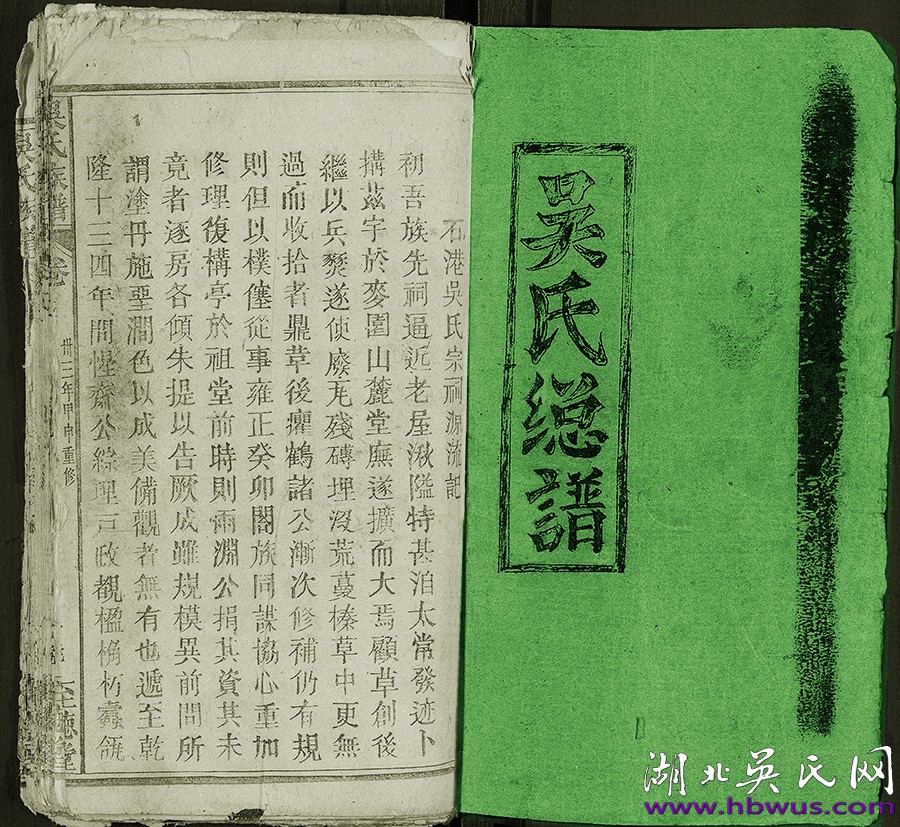 吴氏總譜
石港吳氏宗祠源流記
初吾族先祠逼近老屋湫隘特甚洎太常發迹卜
搆茲宇於麥園山麓堂廡遂擴而大焉顧草創後
繼以兵燹遂使廢瓦殘磚埋沒荒蔓榛草中更無
過而收拾者鼎革後癯鶴諸公漸次修補仍有規
則但以樸僿從事雍正癸卯闔族同謀協心重加
修理復構亭於祖堂前時則雨淵公捐其資其未
竟者逐房各傾朱提以告厥成雖規模異前間所
謂塗丹施堊潤色以成美備觀者無有也遞至乾
隆十三四年間惺齋公綜理戸政覩楹桷朽蠹瓴
吳氏族譜
卷
卅三年甲申重修
至德堂
湖北吴氏网
www.hbwus.com